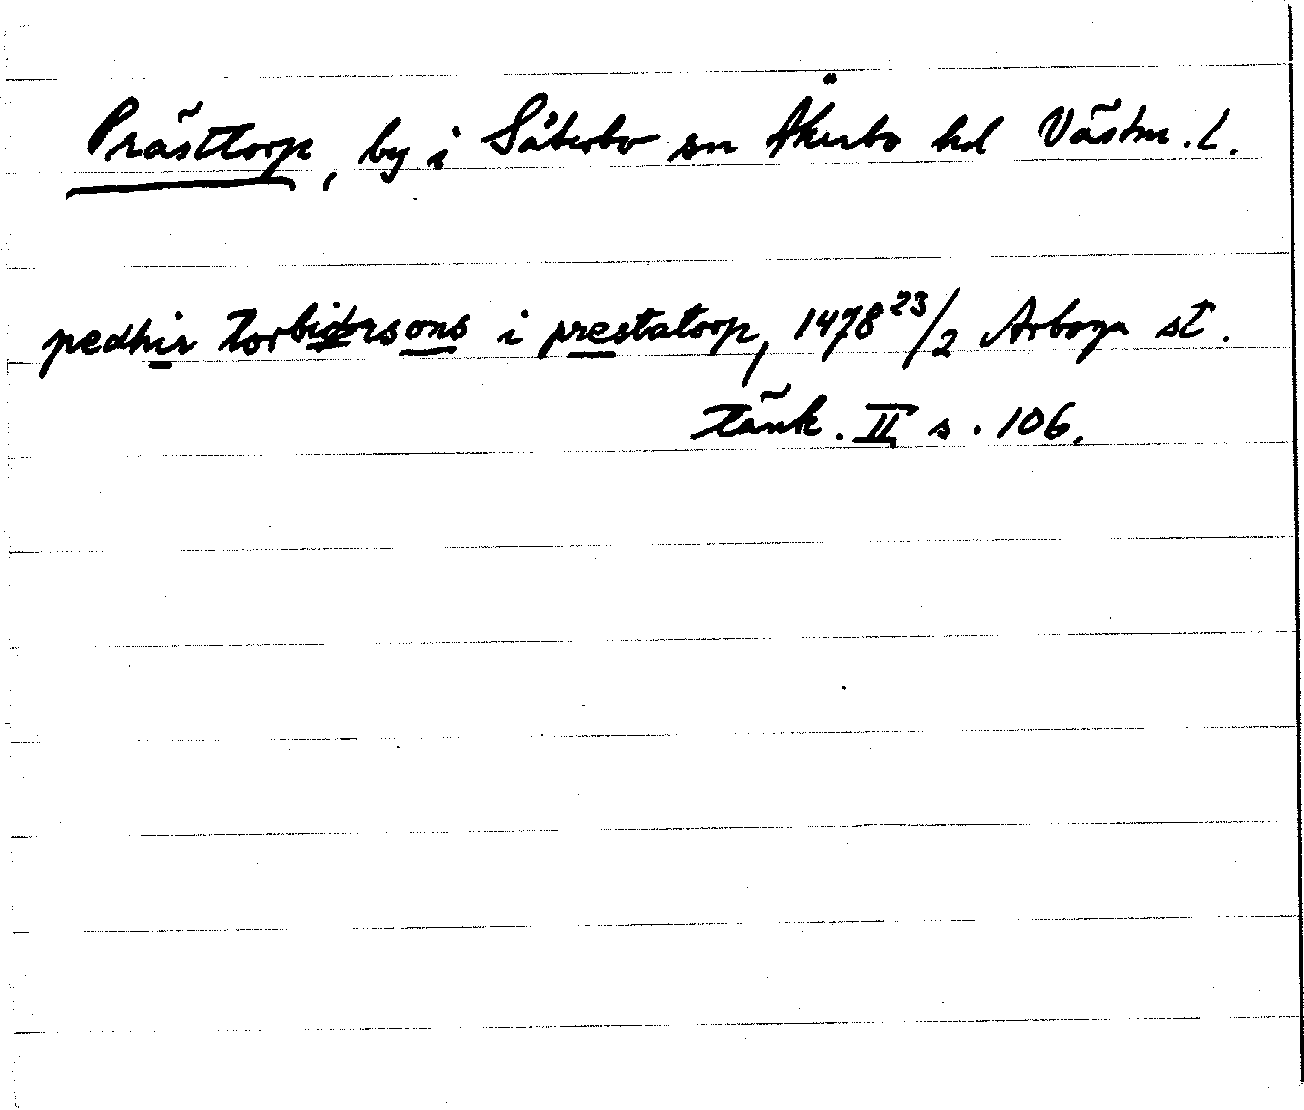 Prästtorp, by i Säterbo sn Åkerbo hd Västm. L.
pedhir torbiörsons i prestatorp, 1478 23/2 Arboga st.
tänk. II s. 106.